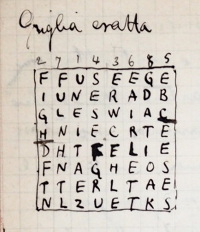 Griglia esatta
2 7 1 4 3 6 8 5
F F U S E E G E
I U N E R A D B
G L E S W I A C
H N I E C R T E
D H T R E L I E
F N A G H E O S
T T E R L T A E
N L Z U E T K S